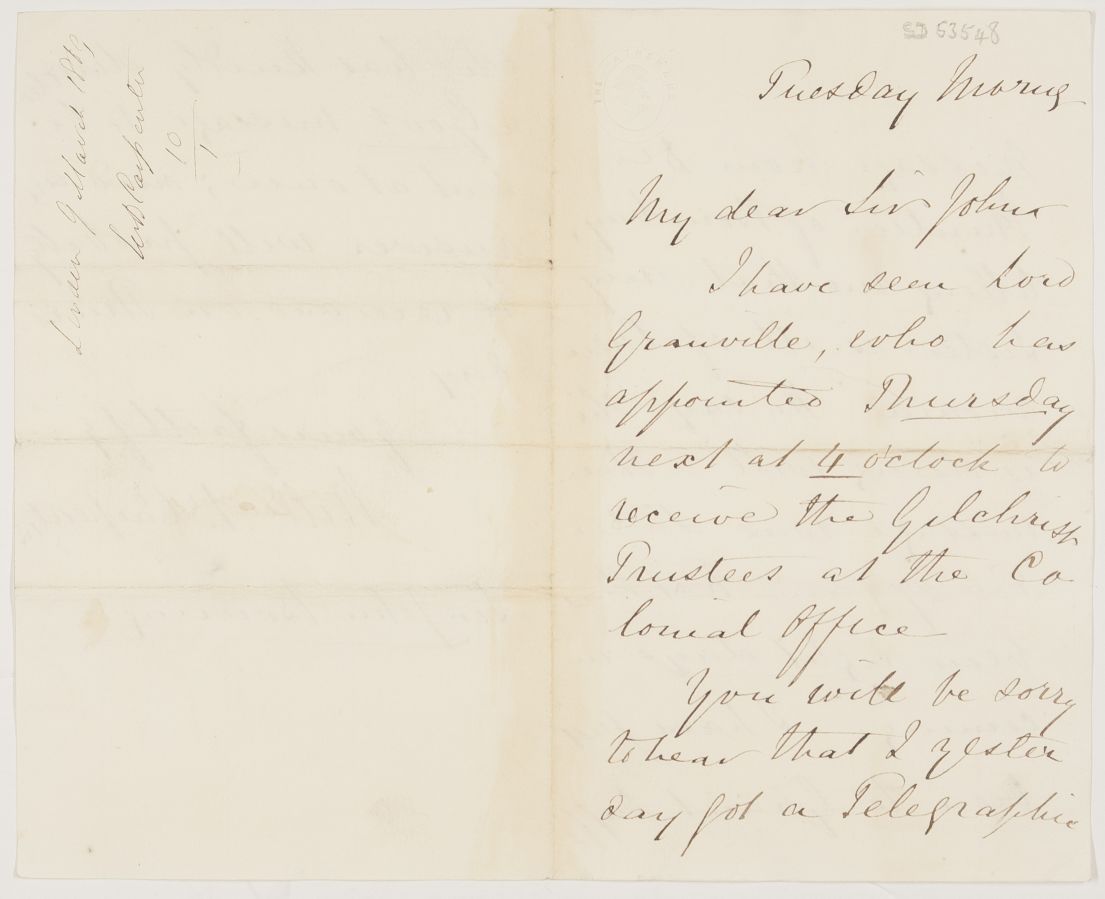 London 9 March 1869
W B Carpenter
10
1
SD 63548
THE ATHENÆUM
Tuesday Morng
My dear Sir John
I have seen Lord
Granville, who has
appointed Thursday
next at 4 o'clock to
receive the Gilchrist
Trustees at the Co
lonial Office
You will be sorry
to hear that I yester
day got a Telegraphic